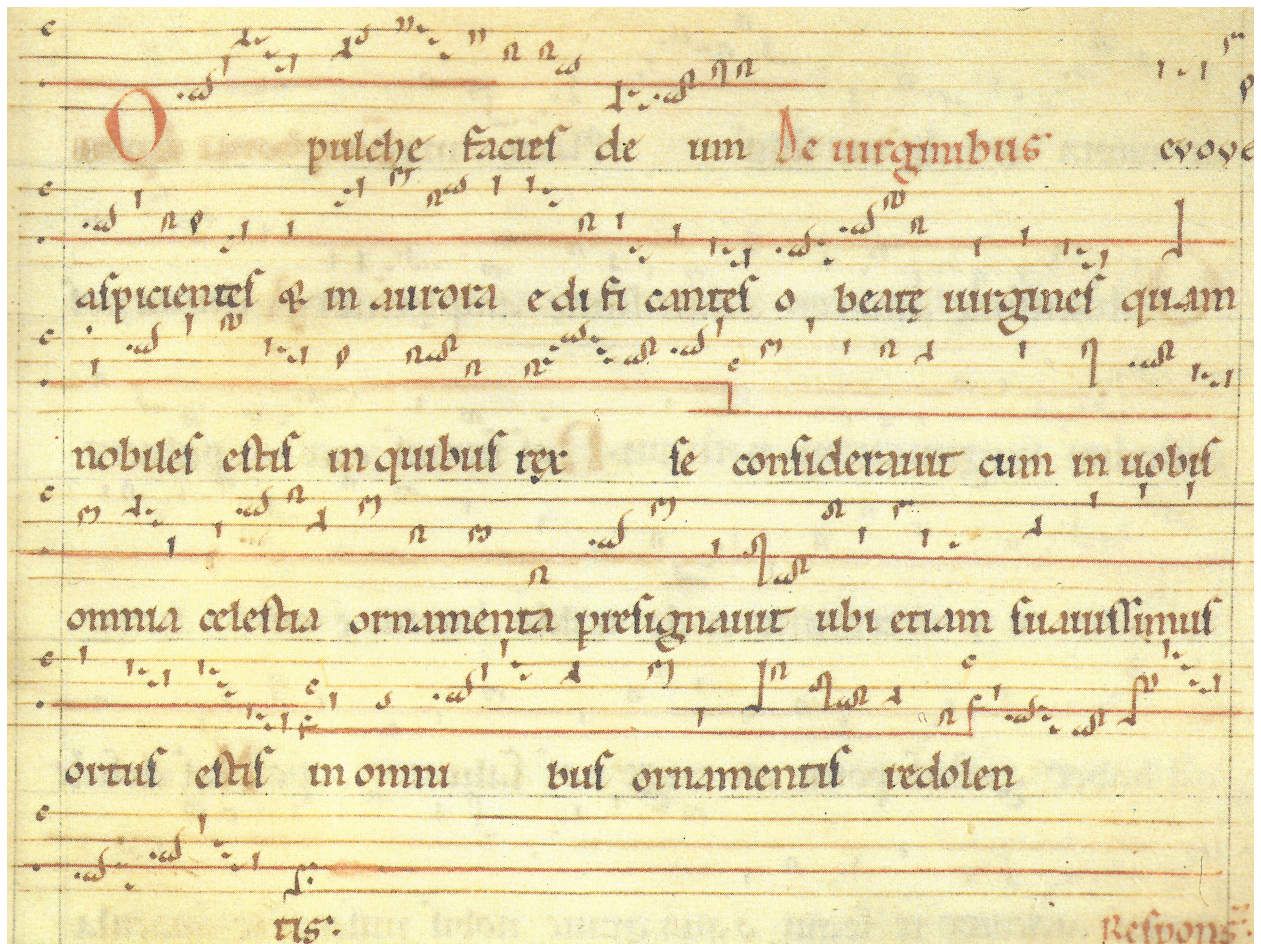 O pulche facies de um De uirginibus evove
aspicientes & in aurora edificantes o beatę uirgines quam
nobiles estis in quibus rex se considerauit cum in uobis
omnia celestia ornamenta presignauit ubi etiam suauissimus
ortus estis in omnibus ornamentis redolen
tis. Respons.